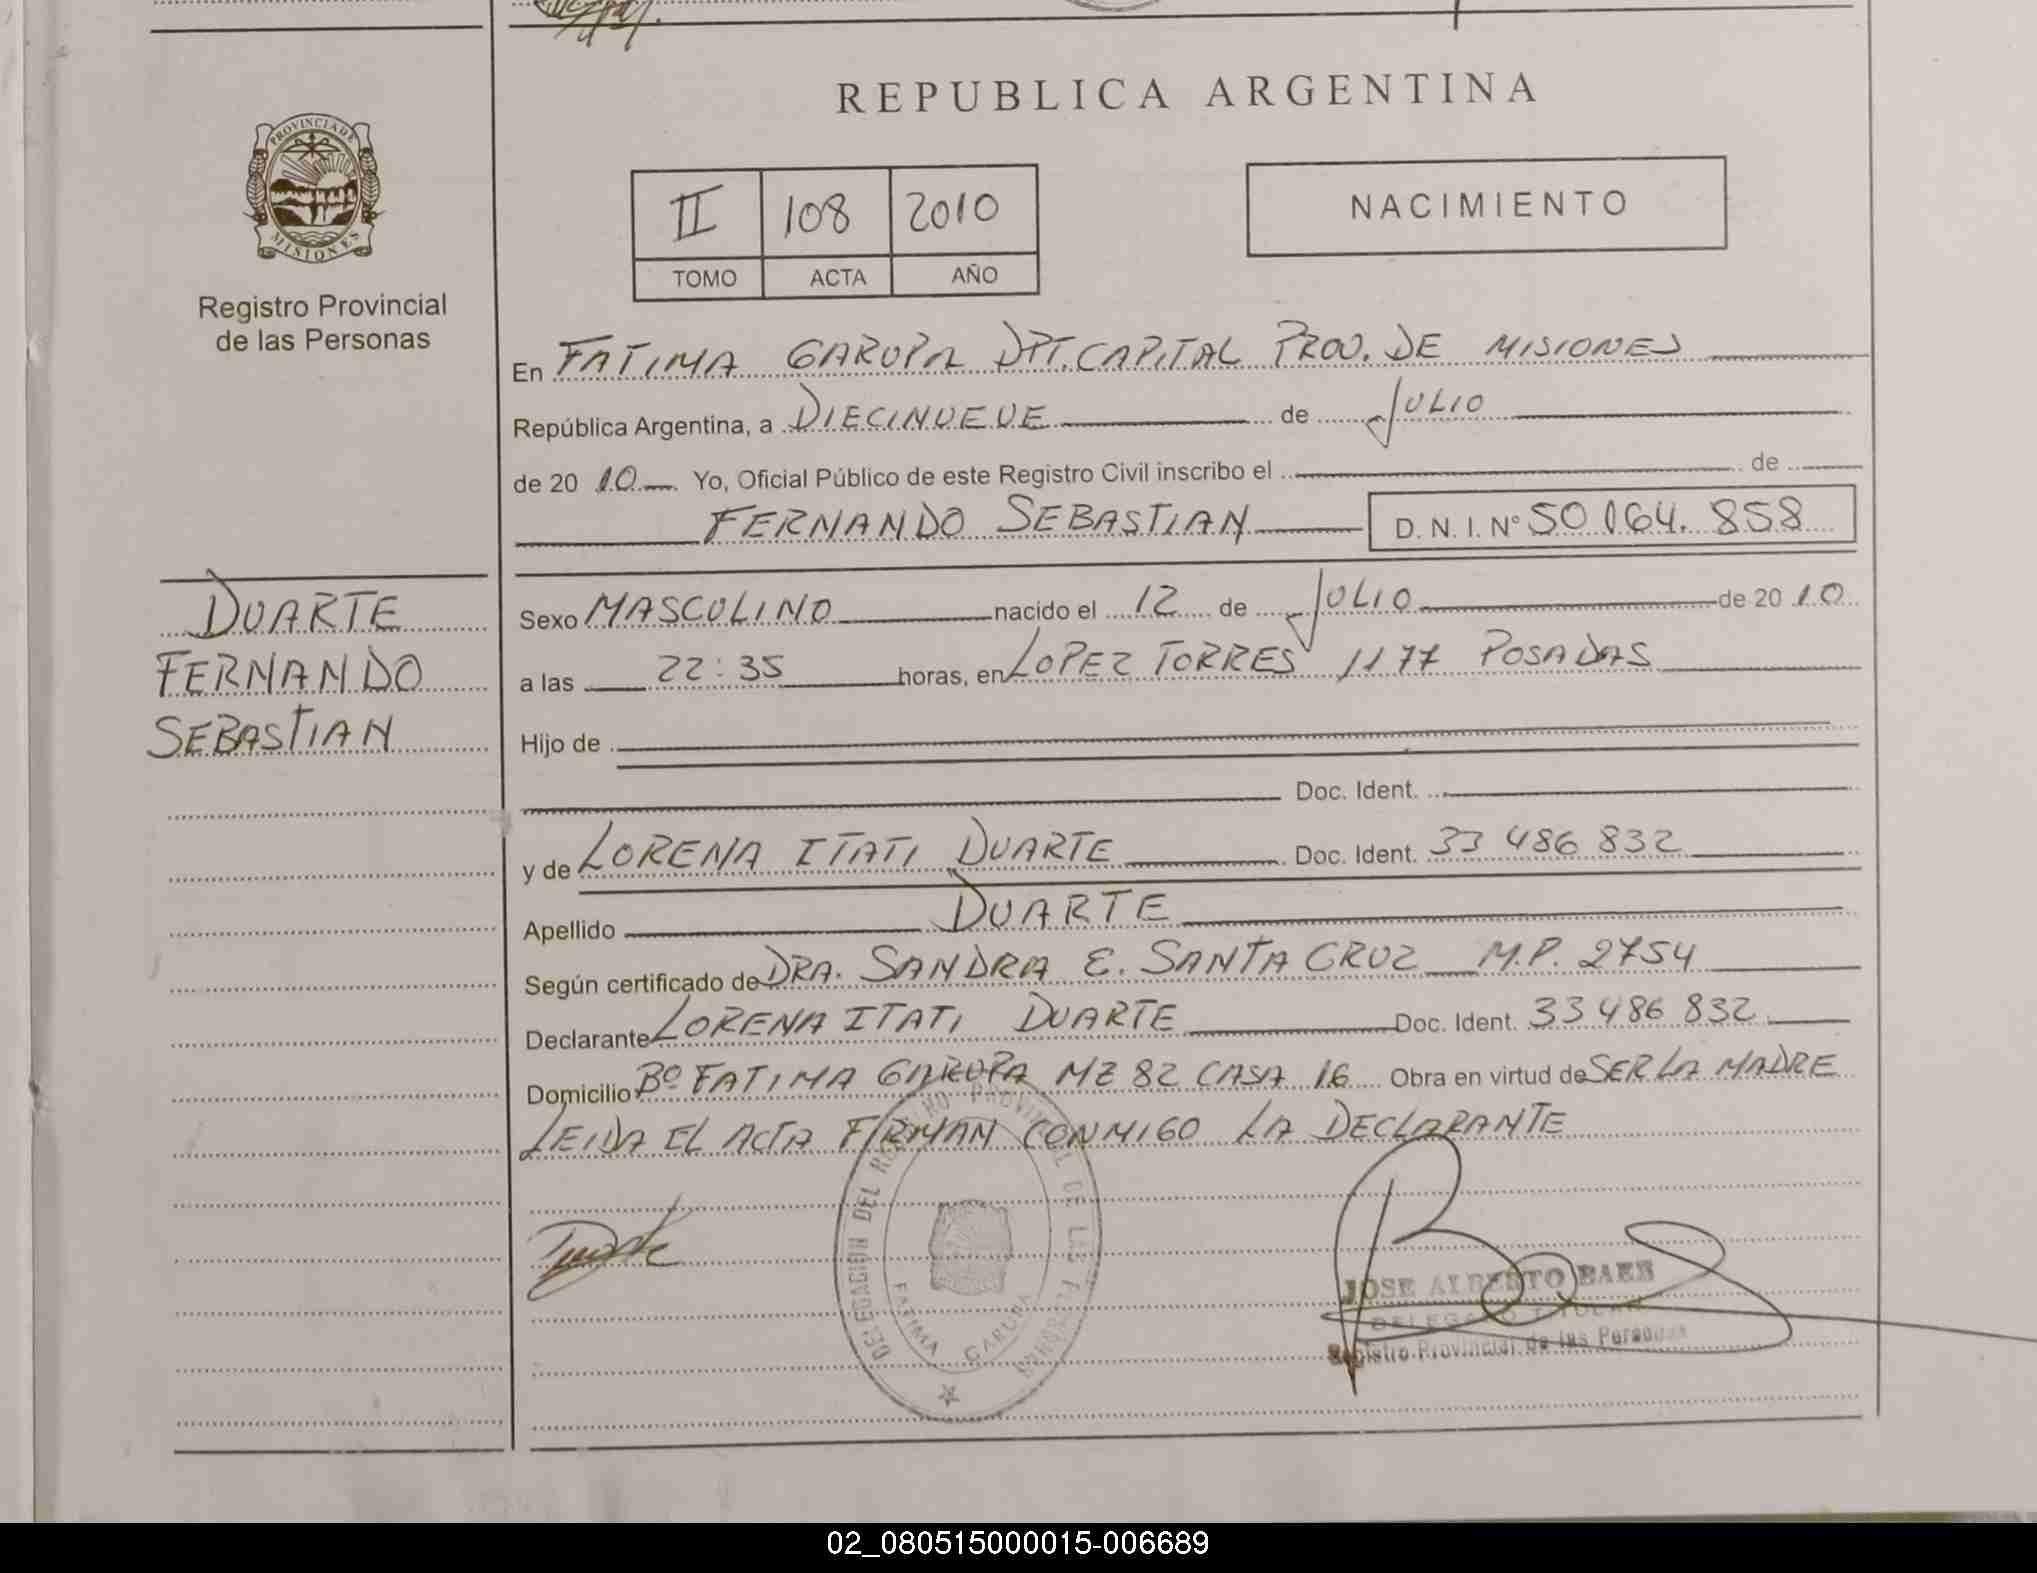 REPUBLICA ARGENTINA
PROVINCIA DE
MISIONES
Registro Provincial
de las Personas
II 108 2010
TOMO ACTA AÑO
NACIMIENTO
En FATIMA GARUPA DPT. CAPITAL PROV. DE MISIONES
República Argentina, a DIECINUEVE de JULIO
de 20 10 Yo, Oficial Público de este Registro Civil inscribo el de
FERNANDO SEBASTIAN D. N. I. N° 50 164. 858
DUARTE
FERNANDO
SEBASTIAN
Sexo MASCULINO nacido el 12 de JULIO de 20 10
a las 22:35 horas, en LOPEZ TORRES 1177 POSADAS
Hijo de
Doc. Ident.
y de LORENA ITATI DUARTE Doc. Ident. 33 486 832
Apellido DUARTE
Según certificado de DRA. SANDRA E. SANTA CRUZ M.P. 2754
Declarante LORENA ITATI DUARTE Doc. Ident. 33 486 832
Domicilio Bº FATIMA GARUPA MZ 82 CASA 16 Obra en virtud de SER LA MADRE
LEIDA EL ACTA FIRMAN CONMIGO LA DECLARANTE
Duarte
DELEGACION DEL REGISTRO PROVINCIAL DE LAS PERSONAS
FATIMA GARUPA
JOSE ALBERTO BAEZ
DELEGADO TITULAR
Registro Provincial de las Personas
02_080515000015-006689